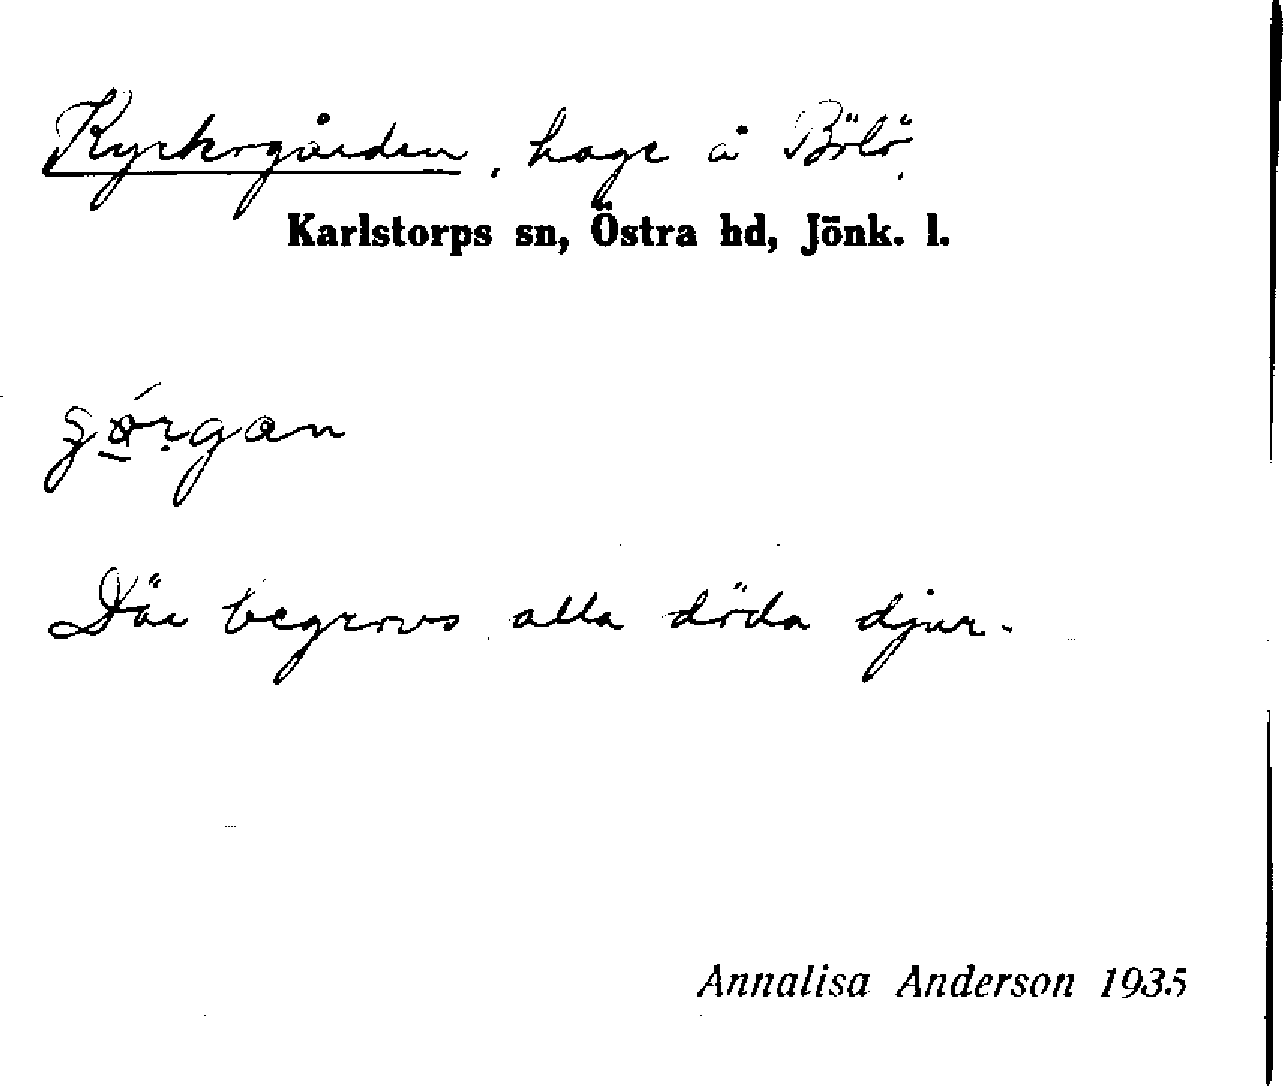 Kyrkogården, hage å Bölö.
Karlstorps sn, Östra hd, Jönk. l.
Där begrovs alla döda djur.
Annalisa Anderson 1935